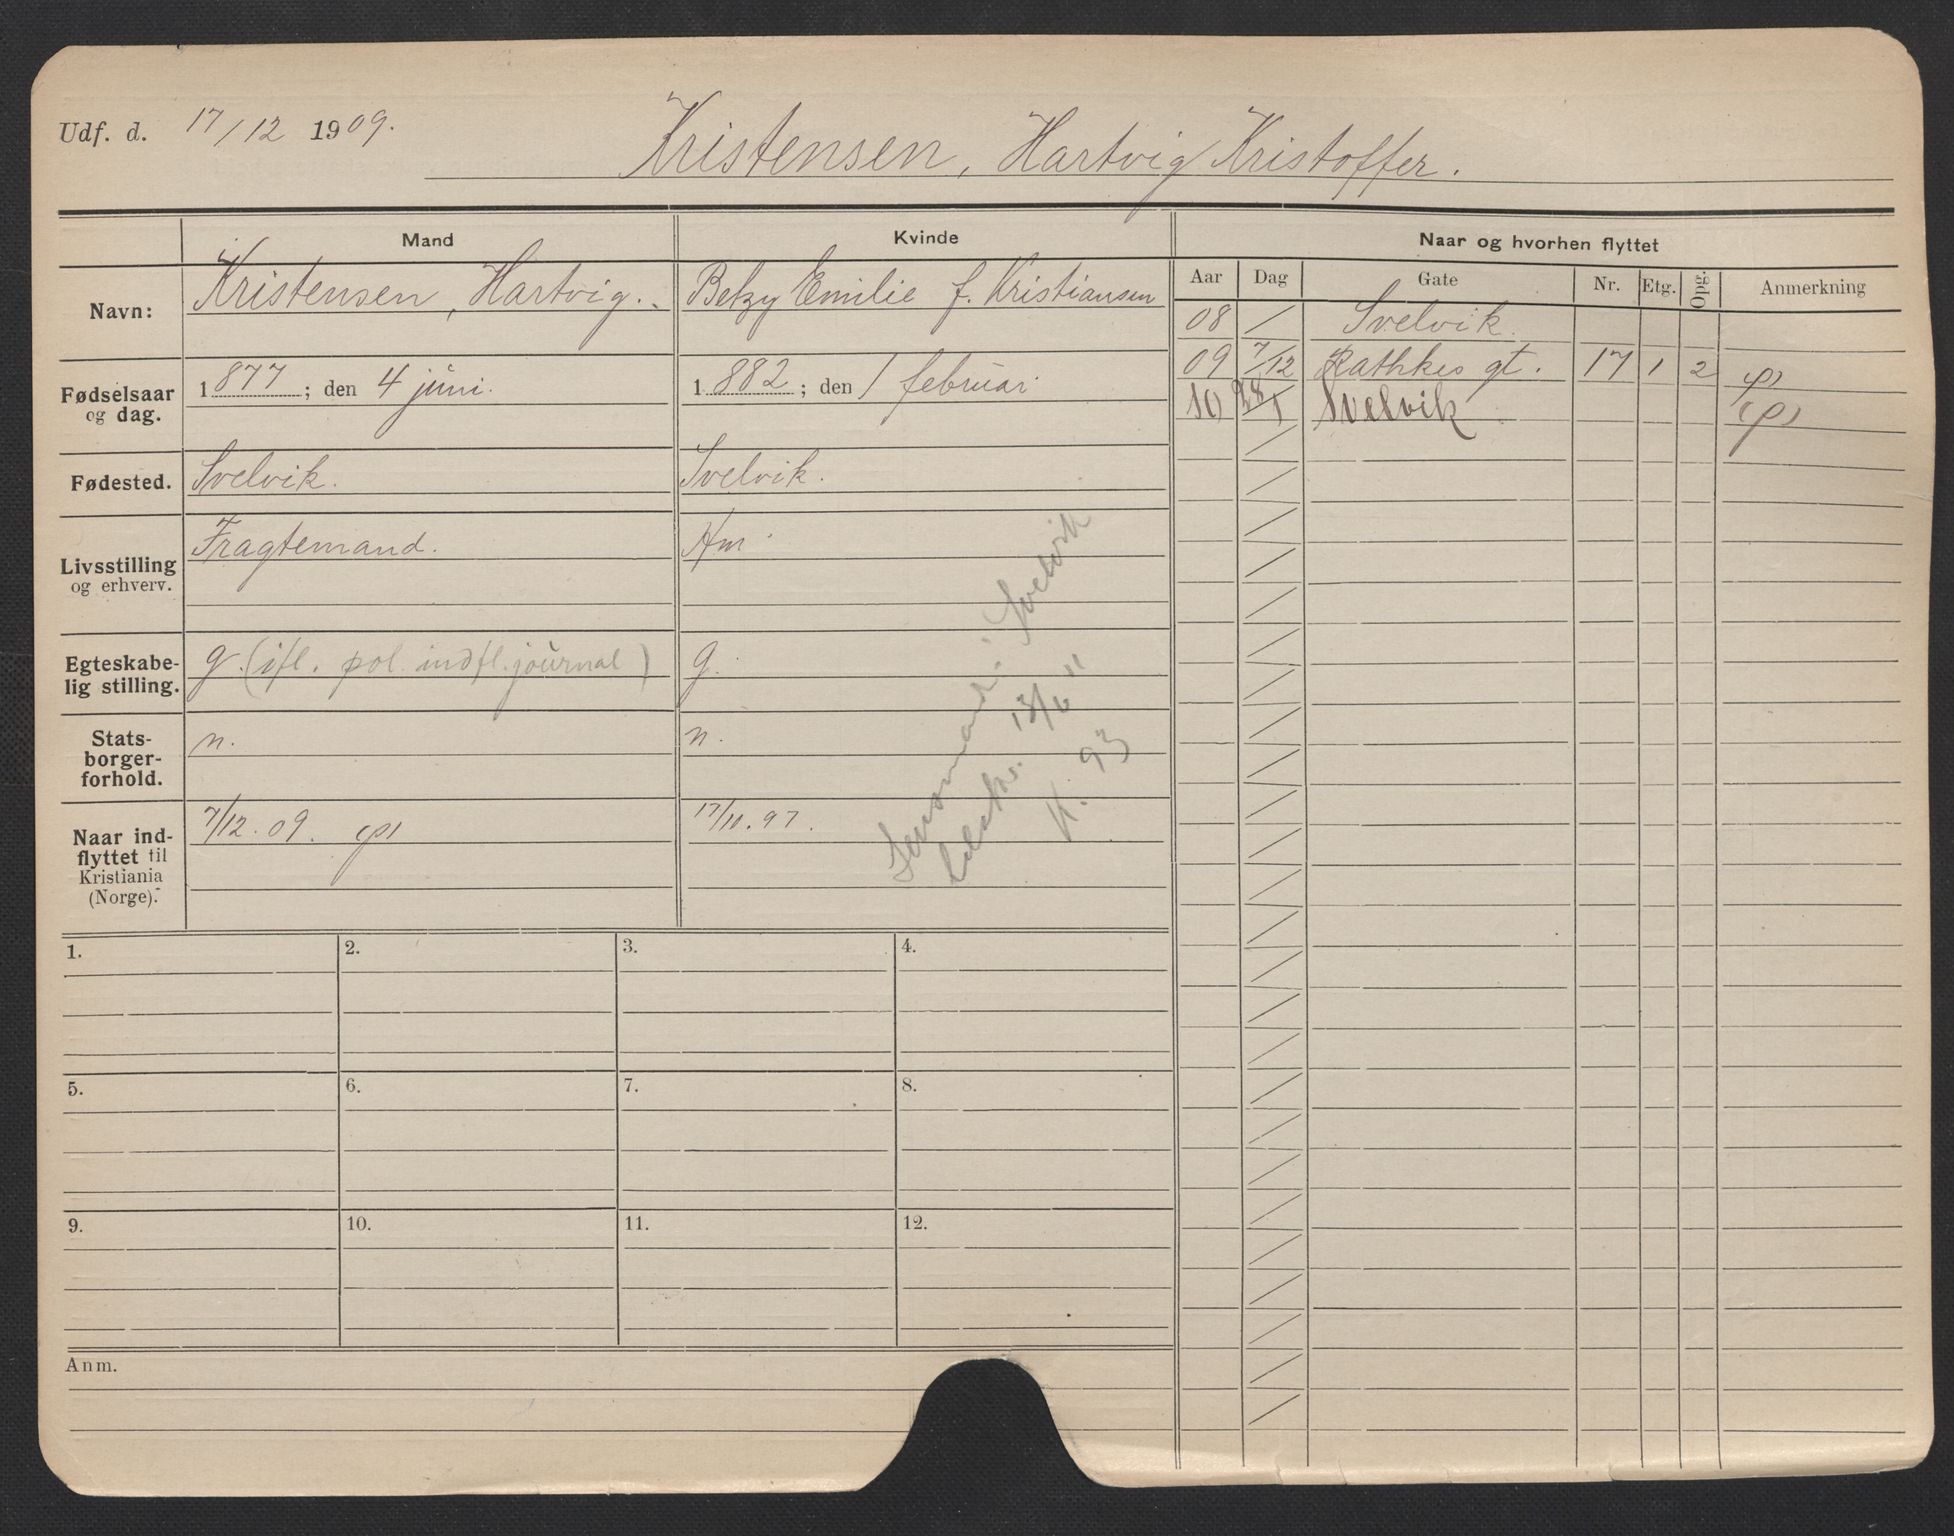 Udf. d. 17/12 1909.
Kristensen, Hartvig Kristoffer.
Mand
Kvinde
Naar og hvorhen flyttet
Navn:
Kristensen, Hartvig.
Betzy Emilie f. Kristiansen
Aar Dag Gate Nr. Etg. Opg. Anmerkning
08 / Svelvik.
09 7/12 Rathkes gt. 17 1 2 (p)
10 28/1 Svelvik (p)
Fødselsaar og dag.
1877; den 4 juni.
1882; den 1 februar
Fødested.
Svelvik.
Svelvik.
Livsstilling og erhverv.
Fragtemand.
Hm
Egteskabe-
lig stilling.
g. (ifl. pol. indfl. journal)
g.
Stats-
borger-
forhold.
n.
n.
Naar ind-
flyttet til
Kristiania
(Norge).
7/12. 09. (p)
17/10. 97.
i Svelvik
13/6 11
K. 93
1.
2.
3.
4.
5.
6.
7.
8.
9.
10.
11.
12.
Anm.